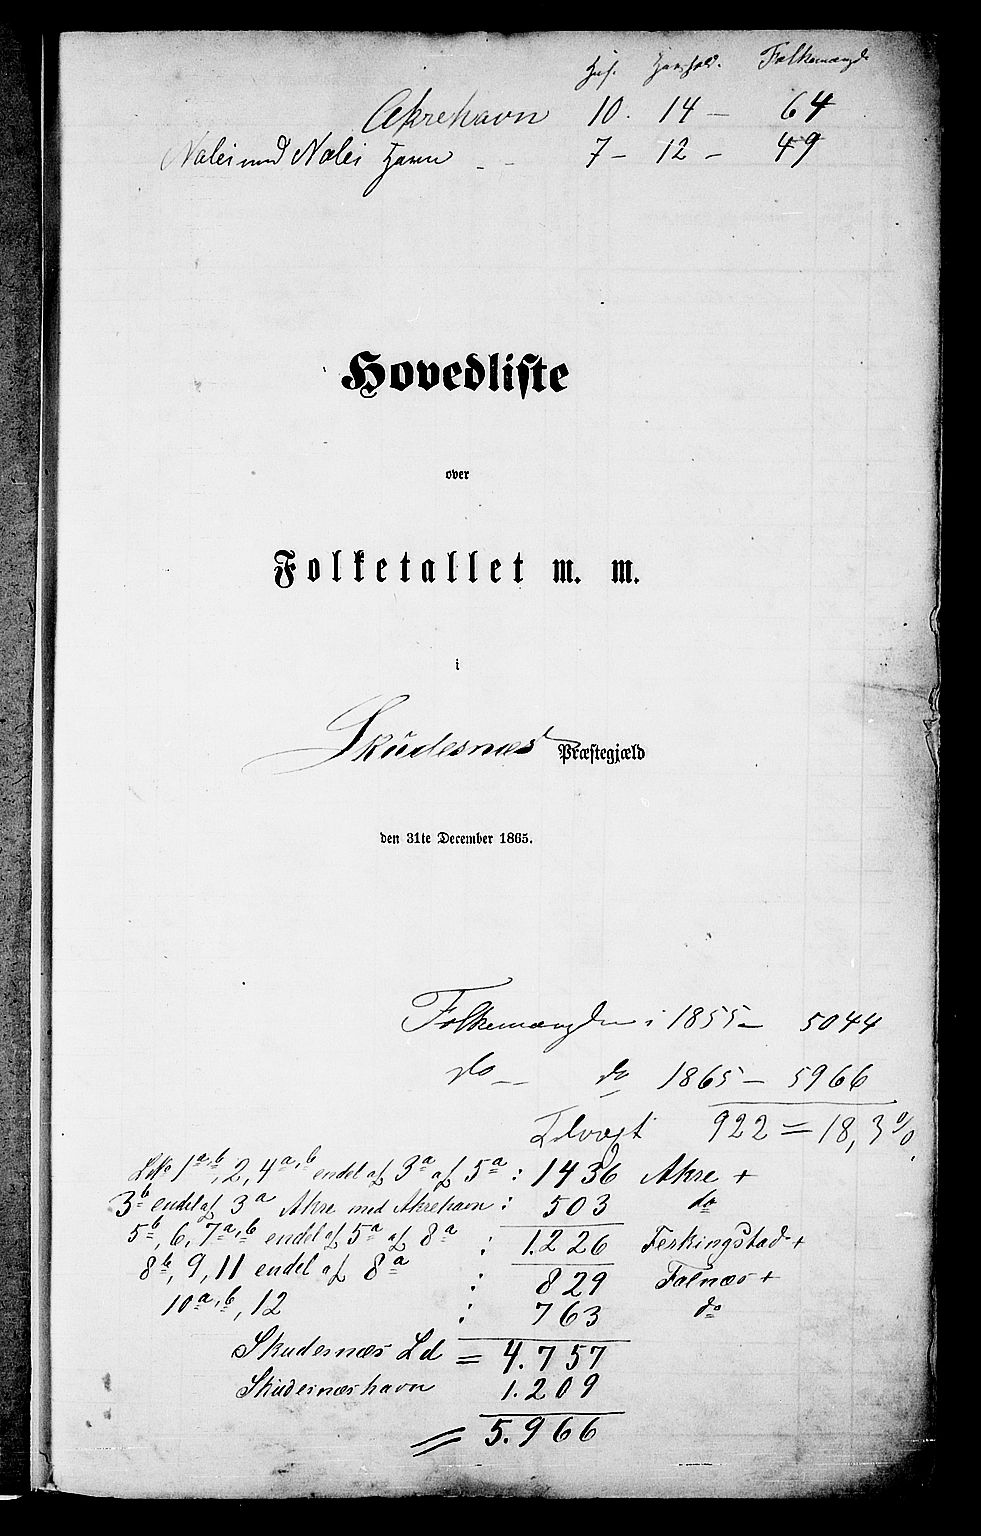 Huse. Hushold. Folkemængde
Akrehavn 10. 14 — 64
Nalei med Nalei Havn — — 7 — 12 — 49
Hovedliste
over
Folketallet m. m.
i
Skudesnæs Præstegjæld
den 31te December 1865.
Folkemængden i 1855 — 5044
do — do 1865 — 5966
Tilvæxt 922 = 18,3 %
1a,b, 2, 4a,b endel af 3a af 5a : 1436 Akre +
3b endel af 3a Akre med Akrehavn : 503 do
5b, 6, 7a,b endel af 5a af 8a : 1.226 Ferkingstad +
8b, 9, 11 endel af 8a : 829 Falnæs +
10a,b, 12 : 763 do
Skudesnæs Ld = 4.757
Skudesnæshavn 1.209
= 5.966